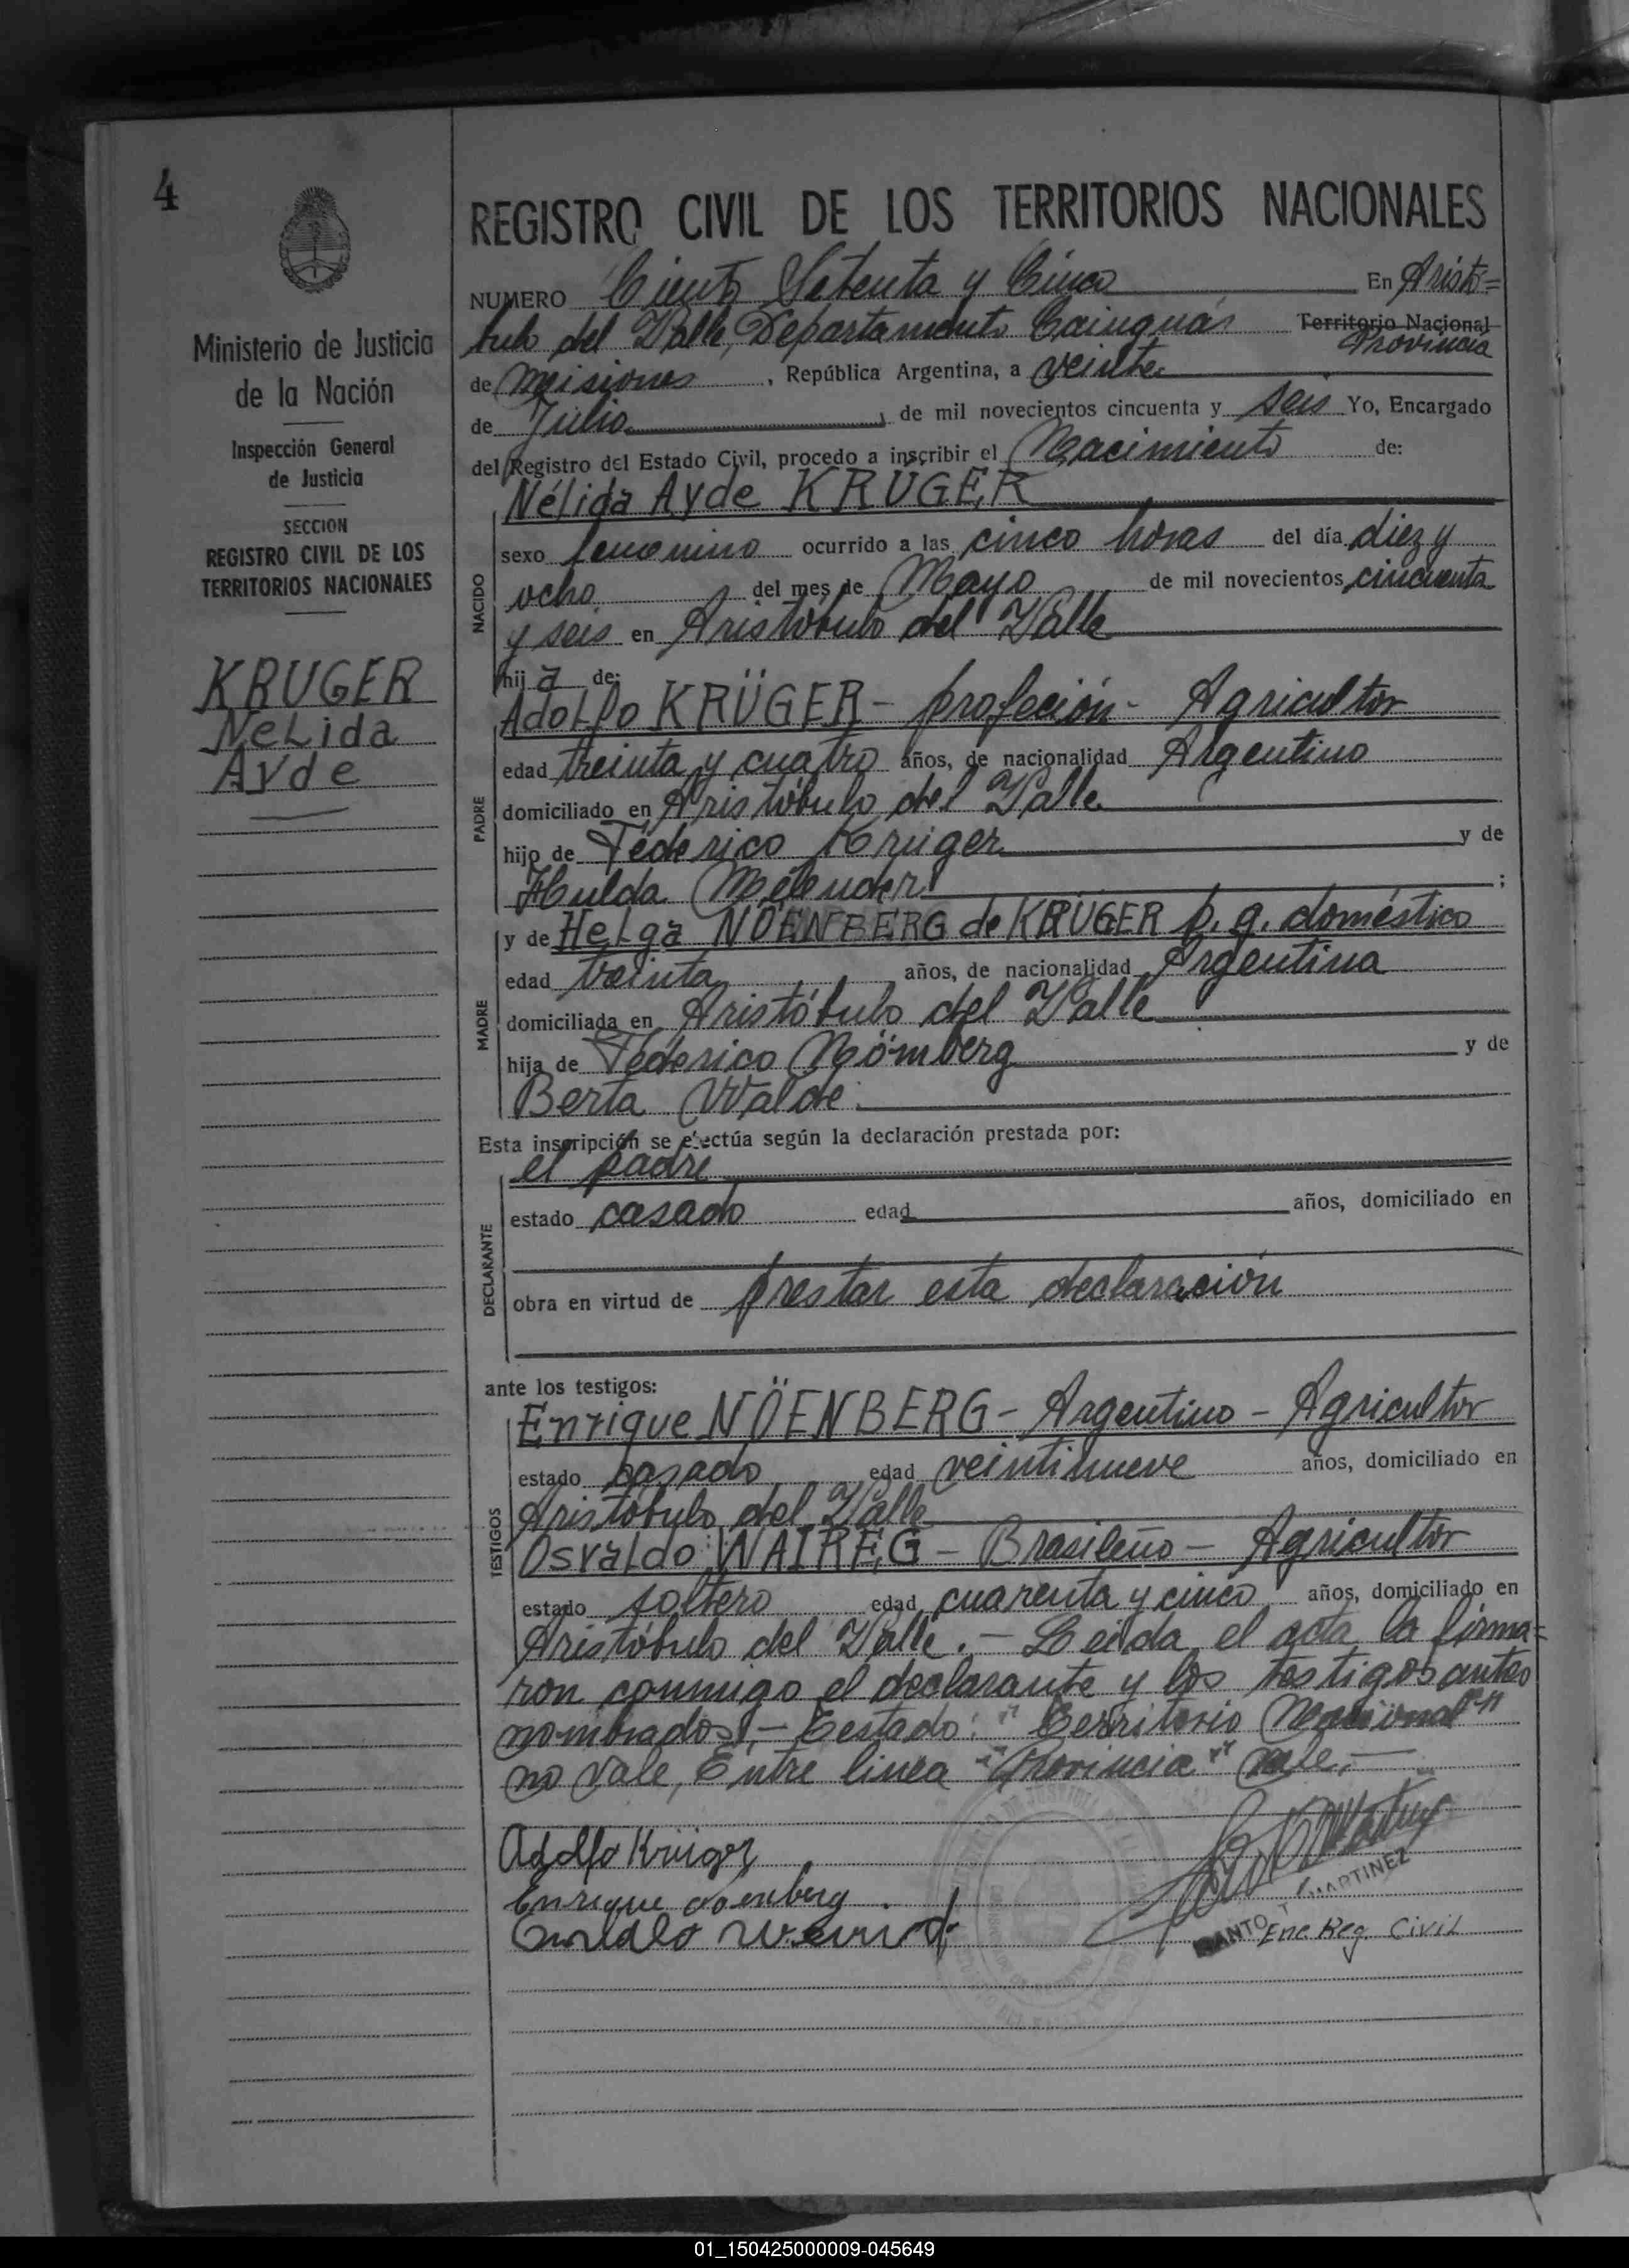 4
REGISTRO CIVIL DE LOS TERRITORIOS NACIONALES
NUMERO Ciento Setenta y Cinco En Aristó=
bulo del Valle, Departamento Cainguás Territorio Nacional
Provincia
de Misiones, República Argentina, a veinte
de Julio, de mil novecientos cincuenta y seis Yo, Encargado
del Registro del Estado Civil, procedo a inscribir el Nacimiento de:
Nélida Ayde KRÜGER
NACIDO
sexo femenino ocurrido a las cinco horas del día diez y
ocho del mes de Mayo de mil novecientos cincuenta
y seis en Aristóbulo del Valle
hija de:
Adolfo KRÜGER - profeción - Agricultor
PADRE
edad treinta y cuatro años, de nacionalidad Argentino
domiciliado en Aristóbulo del Valle
hijo de Féderico Krüger y de
Hulda Melender;
y de Helga NÖENBERG de KRÜGER p. q. doméstico
MADRE
edad treinta años, de nacionalidad Argentina
domiciliada en Aristóbulo del Valle
hija de Féderico Nömberg y de
Berta Walde.
Esta inscripción se efectúa según la declaración prestada por:
el padre
DECLARANTE
estado casado edad años, domiciliado en
obra en virtud de prestar esta declaración
ante los testigos:
Enrique NÖENBERG - Argentino - Agricultor
TESTIGOS
estado casado edad veintinueve años, domiciliado en
Aristóbulo del Valle
Osvaldo WAIREG - Brasileño - Agricultor
estado soltero edad cuarenta y cinco años, domiciliado en
Aristóbulo del Valle. - Leida el acta la firma=
ron conmigo el declarante y los testigos antes
nombrados. - Testado: "Territorio Nacional"
no vale, Entre linea "Provincia" vale. -
Adolfo Krüger
Enrique Noenberg
SANTO T MARTINEZ
Enc Reg. Civil
Ministerio de Justicia
de la Nación
Inspección General
de Justicia
SECCION
REGISTRO CIVIL DE LOS
TERRITORIOS NACIONALES
KRUGER
NeLida
Ayde
01_150425000009-045649